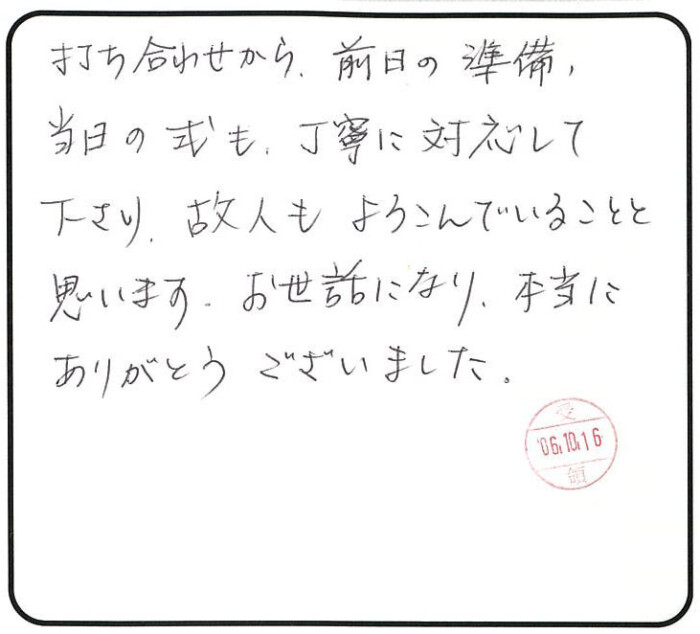 打ち合わせから、前日の準備、
当日の式も、丁寧に対応して
下さり、故人もよろこんでいることと
思います。お世話になり、本当に
ありがとうございました。
受
'06.10.16
領